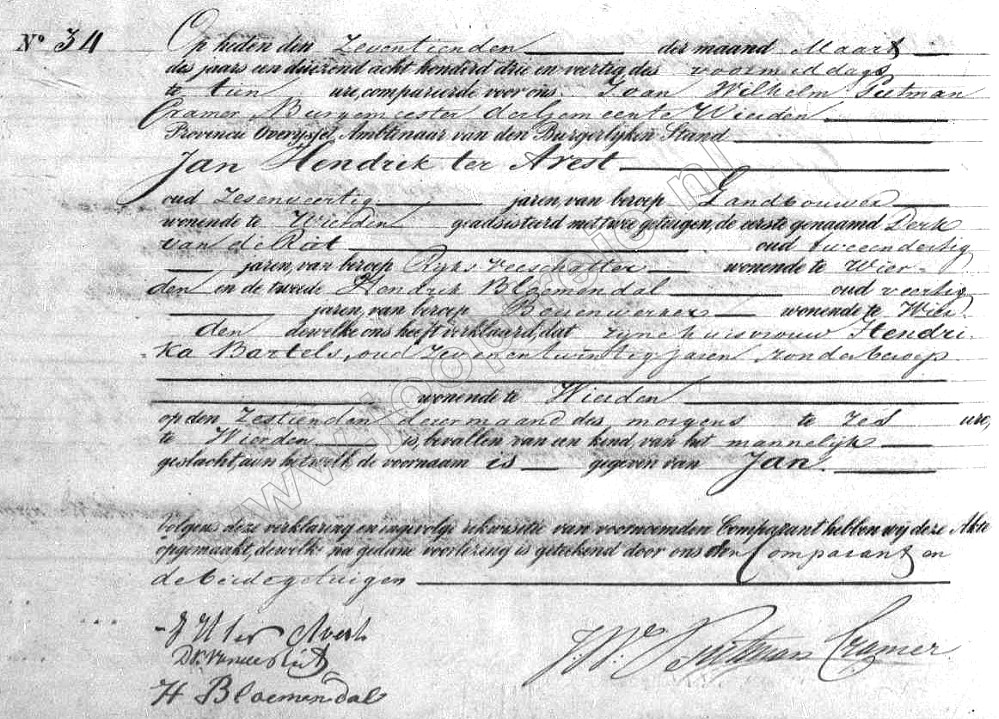 No 34 Op heden den Zeventienden der maand Maart
des jaars een duizend acht honderd drie en veertig des voormiddags
te tien ure, compareerde voor ons. Joan Wilhelm Putman
Cramer Burgemeester der Gemeente Wierden
Provincie Overyssel, Ambtenaar van den Burgerlyken Stand
Jan Hendrik ter Avest
oud Zesenveertig jaren, van beroep Landbouwer
wonende te Wierden geadsisteerd met twee getuigen, de eerste genaamd Derk
van de Riet oud tweeendertig
jaren, van beroep Ryks Veeschatter wonende te Wier-
den en de tweede Hendrik Bloemendal oud veertig
jaren, van beroep Boerenwerker wonende te Wier
den dewelke ons heeft verklaard, dat zyne huisvrouw Hendri-
ka Bartels, oud Zevenentwintig jaren zonder beroep
wonende te Wierden
op den Zestienden dezer maand des morgens te Zes ure,
te Wierden is, bevallen van een kind, van het mannelyk
geslacht, aan hetwelk de voornaam is gegeven van Jan.
Volgens deze verklaring en ingevolge rekwisitie van voornoemden Comparant hebben wij deze Akte
opgemaakt, dewelke na gedane voorlezing is geteekend door ons den Comparant en
de beide getuigen
J H ter Avest
Dk van de Riet
J. W. Putman Cramer
H Bloemendal
www.
.nl